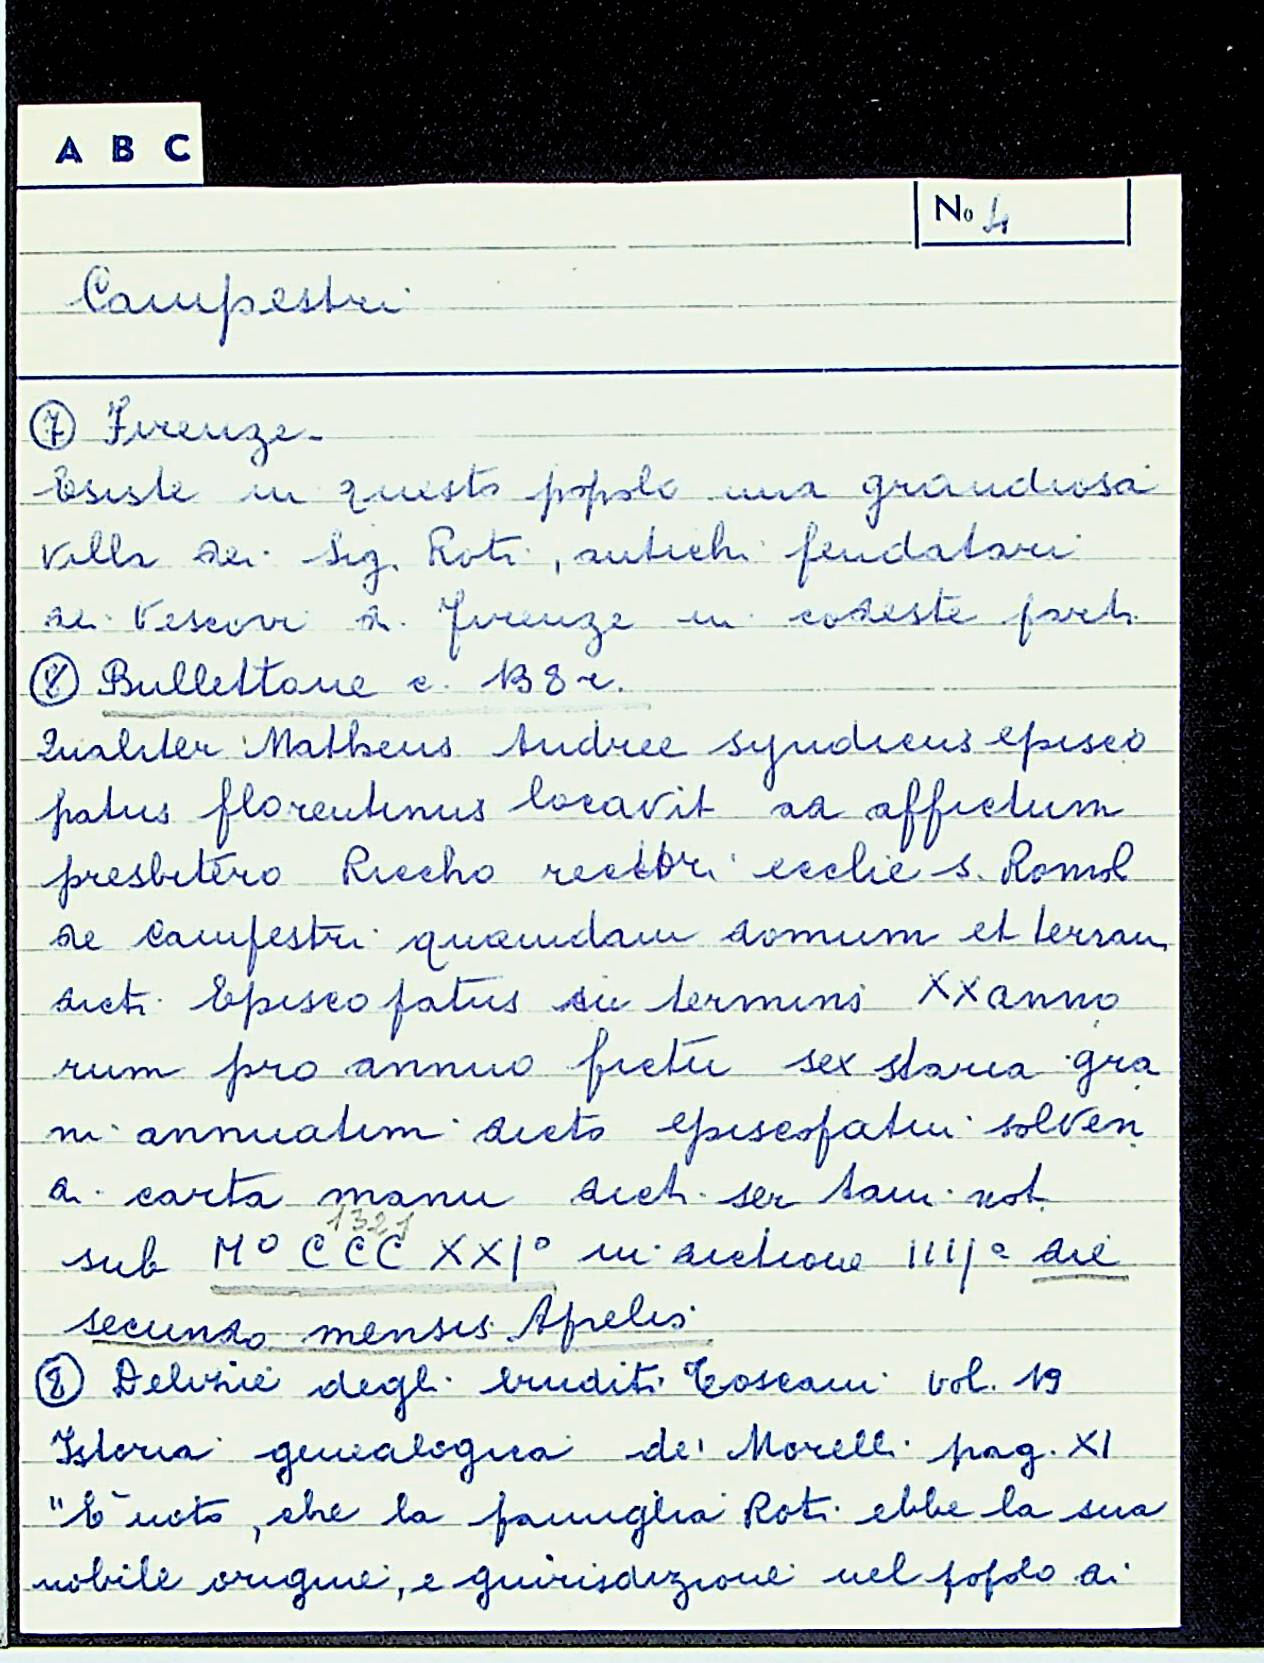 A B C
No 4
Campestri
⑦ Firenze-
Esiste in questo popolo una grandiosa
Villa dei Sig. Roti, antichi feudatari
dei Vescovi di Firenze in codeste parti
⑧ Bullettone c. 138 r.
Qualiter Matheus Andree syndicus episco
patus florentinus locavit ad affictum
presbitero Riccho rectori ecclie s. Romol
de Campestri quamdam domum et terram
dicti Episcopatus termino XX anno
rum pro annuo fictu sex staria gra
ni annuatim dicto episcopatui solven
di carta manu dicti ser not.
1321
sub M° CCC XXI° indictione IIII° die
secundo mensis Aprelis
Delizie degli Eruditi Toscani vol. 19
Istoria genealogica de' Morelli pag. XI
"È noto, che la famiglia Roti ebbe la sua
nobile origine, e giurisdizione nel popolo di